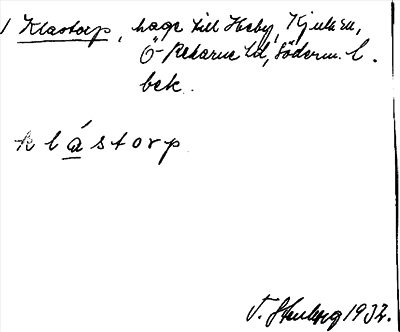 1 Klastorp, hage till Heby, Kjulsta,
Ö-Rekarne hd, Söderm. l.
bek.
klástorp
T. Stenberg 1932.